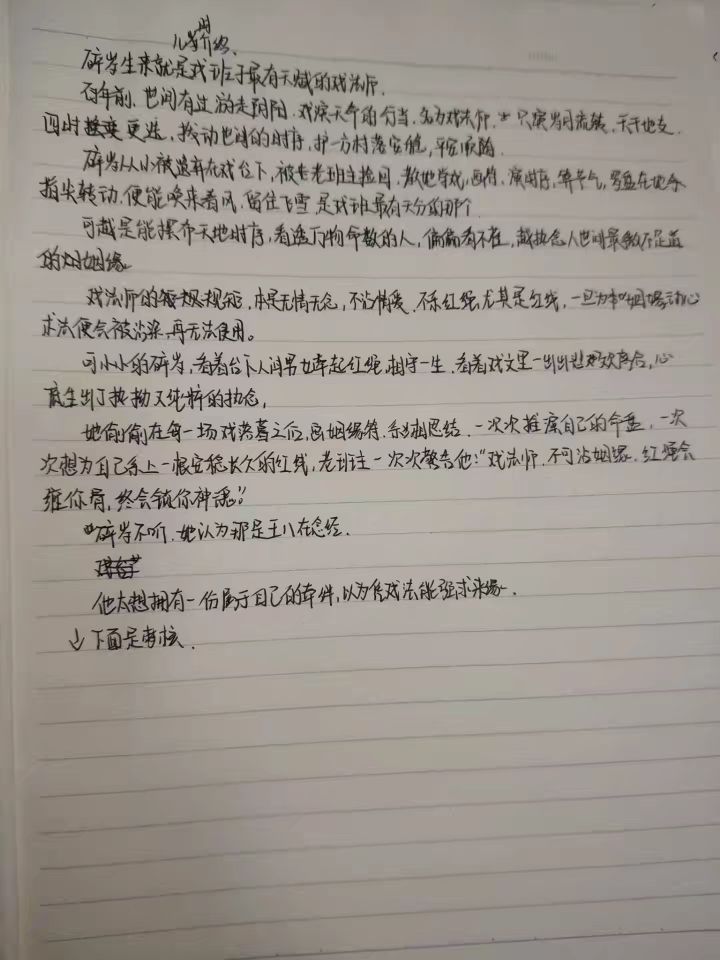 儿时介绍、
碎岁生来就是戏班子最有天赋的戏法师.
百年前、世间有过游走阴阳、戏演天命的行当、名为戏法师.只演岁月流转、天干地支.
四时更迭、拨动世间的时序,护一方村落安稳,平安顺遂.
碎岁从小被遗弃在戏台下,被老班主捡回、教她学戏,画符、演时序,算节气,罗盘在她余
指尖转动,便能唤来春风,留住飞雪.是戏班最有天分的那个.
可越是能摆布天地时序,看透万物命数的人,偏偏看不在,越执念人世间最微不足道
的姻缘
戏法师的规矩,本是无情无念,不沾情爱、不系红绳,尤其是红线,一旦为姻缘动心
术法便会被沾染,再无法使用。
可小小的碎岁,看着台下人间男女牵起红绳,相守一生.看着戏文里一出出悲欢离合,心
底生出了执拗又纯粹的执念,
她偷偷在每一场戏落幕之后,画姻缘符.系相思结.一次次推演自己的命盘、一次
次想为自己系上一根安稳长久的红线,老班主一次次警告他:“戏法师、不可沾姻缘.红绳会
缠你骨,终会锁你神魂”
碎岁不听.她认为那是王八在念经.
他太想拥有一份属于自己的牵绊,以为凭戏法能强求来缘.
↓下面是考核.